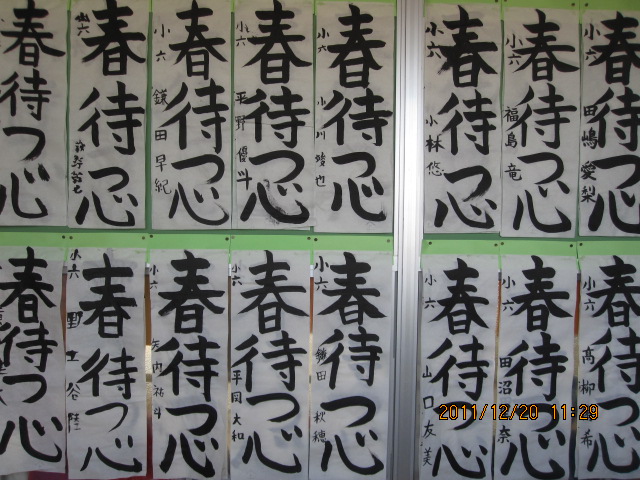 春待つ心
春待つ心
小六
春待つ心
小六 鎌田早紀
春待つ心
小六 平野優斗
春待つ心
小六 小川
春待つ心
小六 小林悠
春待つ心
小六 福島竜
春待つ心
小六 田嶋愛梨
春待つ心
春待つ心
小六
春待つ心
小六 矢内祐斗
春待つ心
小六 平岡大和
春待つ心
小六 鎌田秋穂
春待つ心
小六 山口友美
春待つ心
小六 田沼奈
春待つ心
小六 高柳希
2011/12/20 11:29